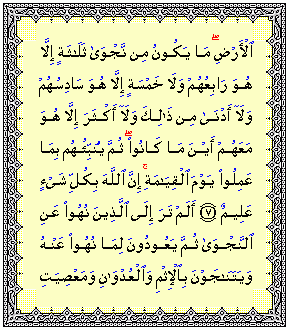 ٱلۡأَرۡضِۖ مَا يَكُونُ مِن نَّجۡوَىٰ ثَلَٰثَةٍ إِلَّا
هُوَ رَابِعُهُمۡ وَلَا خَمۡسَةٍ إِلَّا هُوَ سَادِسُهُمۡ
وَلَآ أَدۡنَىٰ مِن ذَٰلِكَ وَلَآ أَكۡثَرَ إِلَّا هُوَ
مَعَهُمۡ أَيۡنَ مَا كَانُواْۖ ثُمَّ يُنَبِّئُهُم بِمَا
عَمِلُواْ يَوۡمَ ٱلۡقِيَٰمَةِۚ إِنَّ ٱللَّهَ بِكُلِّ شَيۡءٍ
عَلِيمٌ ٧ أَلَمۡ تَرَ إِلَى ٱلَّذِينَ نُهُواْ عَنِ
ٱلنَّجۡوَىٰ ثُمَّ يَعُودُونَ لِمَا نُهُواْ عَنۡهُ
وَيَتَنَٰجَوۡنَ بِٱلۡإِثۡمِ وَٱلۡعُدۡوَٰنِ وَمَعۡصِيَتِ